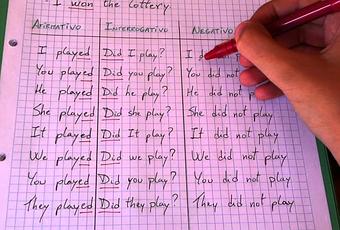 I won the lottery.
AFIRMATIVO INTERROGATIVO NEGATIVO
I played Did I play? I
You played Did you play? You did not
He played Did he play? He did not
She played Did she play? She did not play
It played Did It play? It did not play
We played Did we play? We did not play
You played Did you play? You did not play
They played Did they play? They did not play